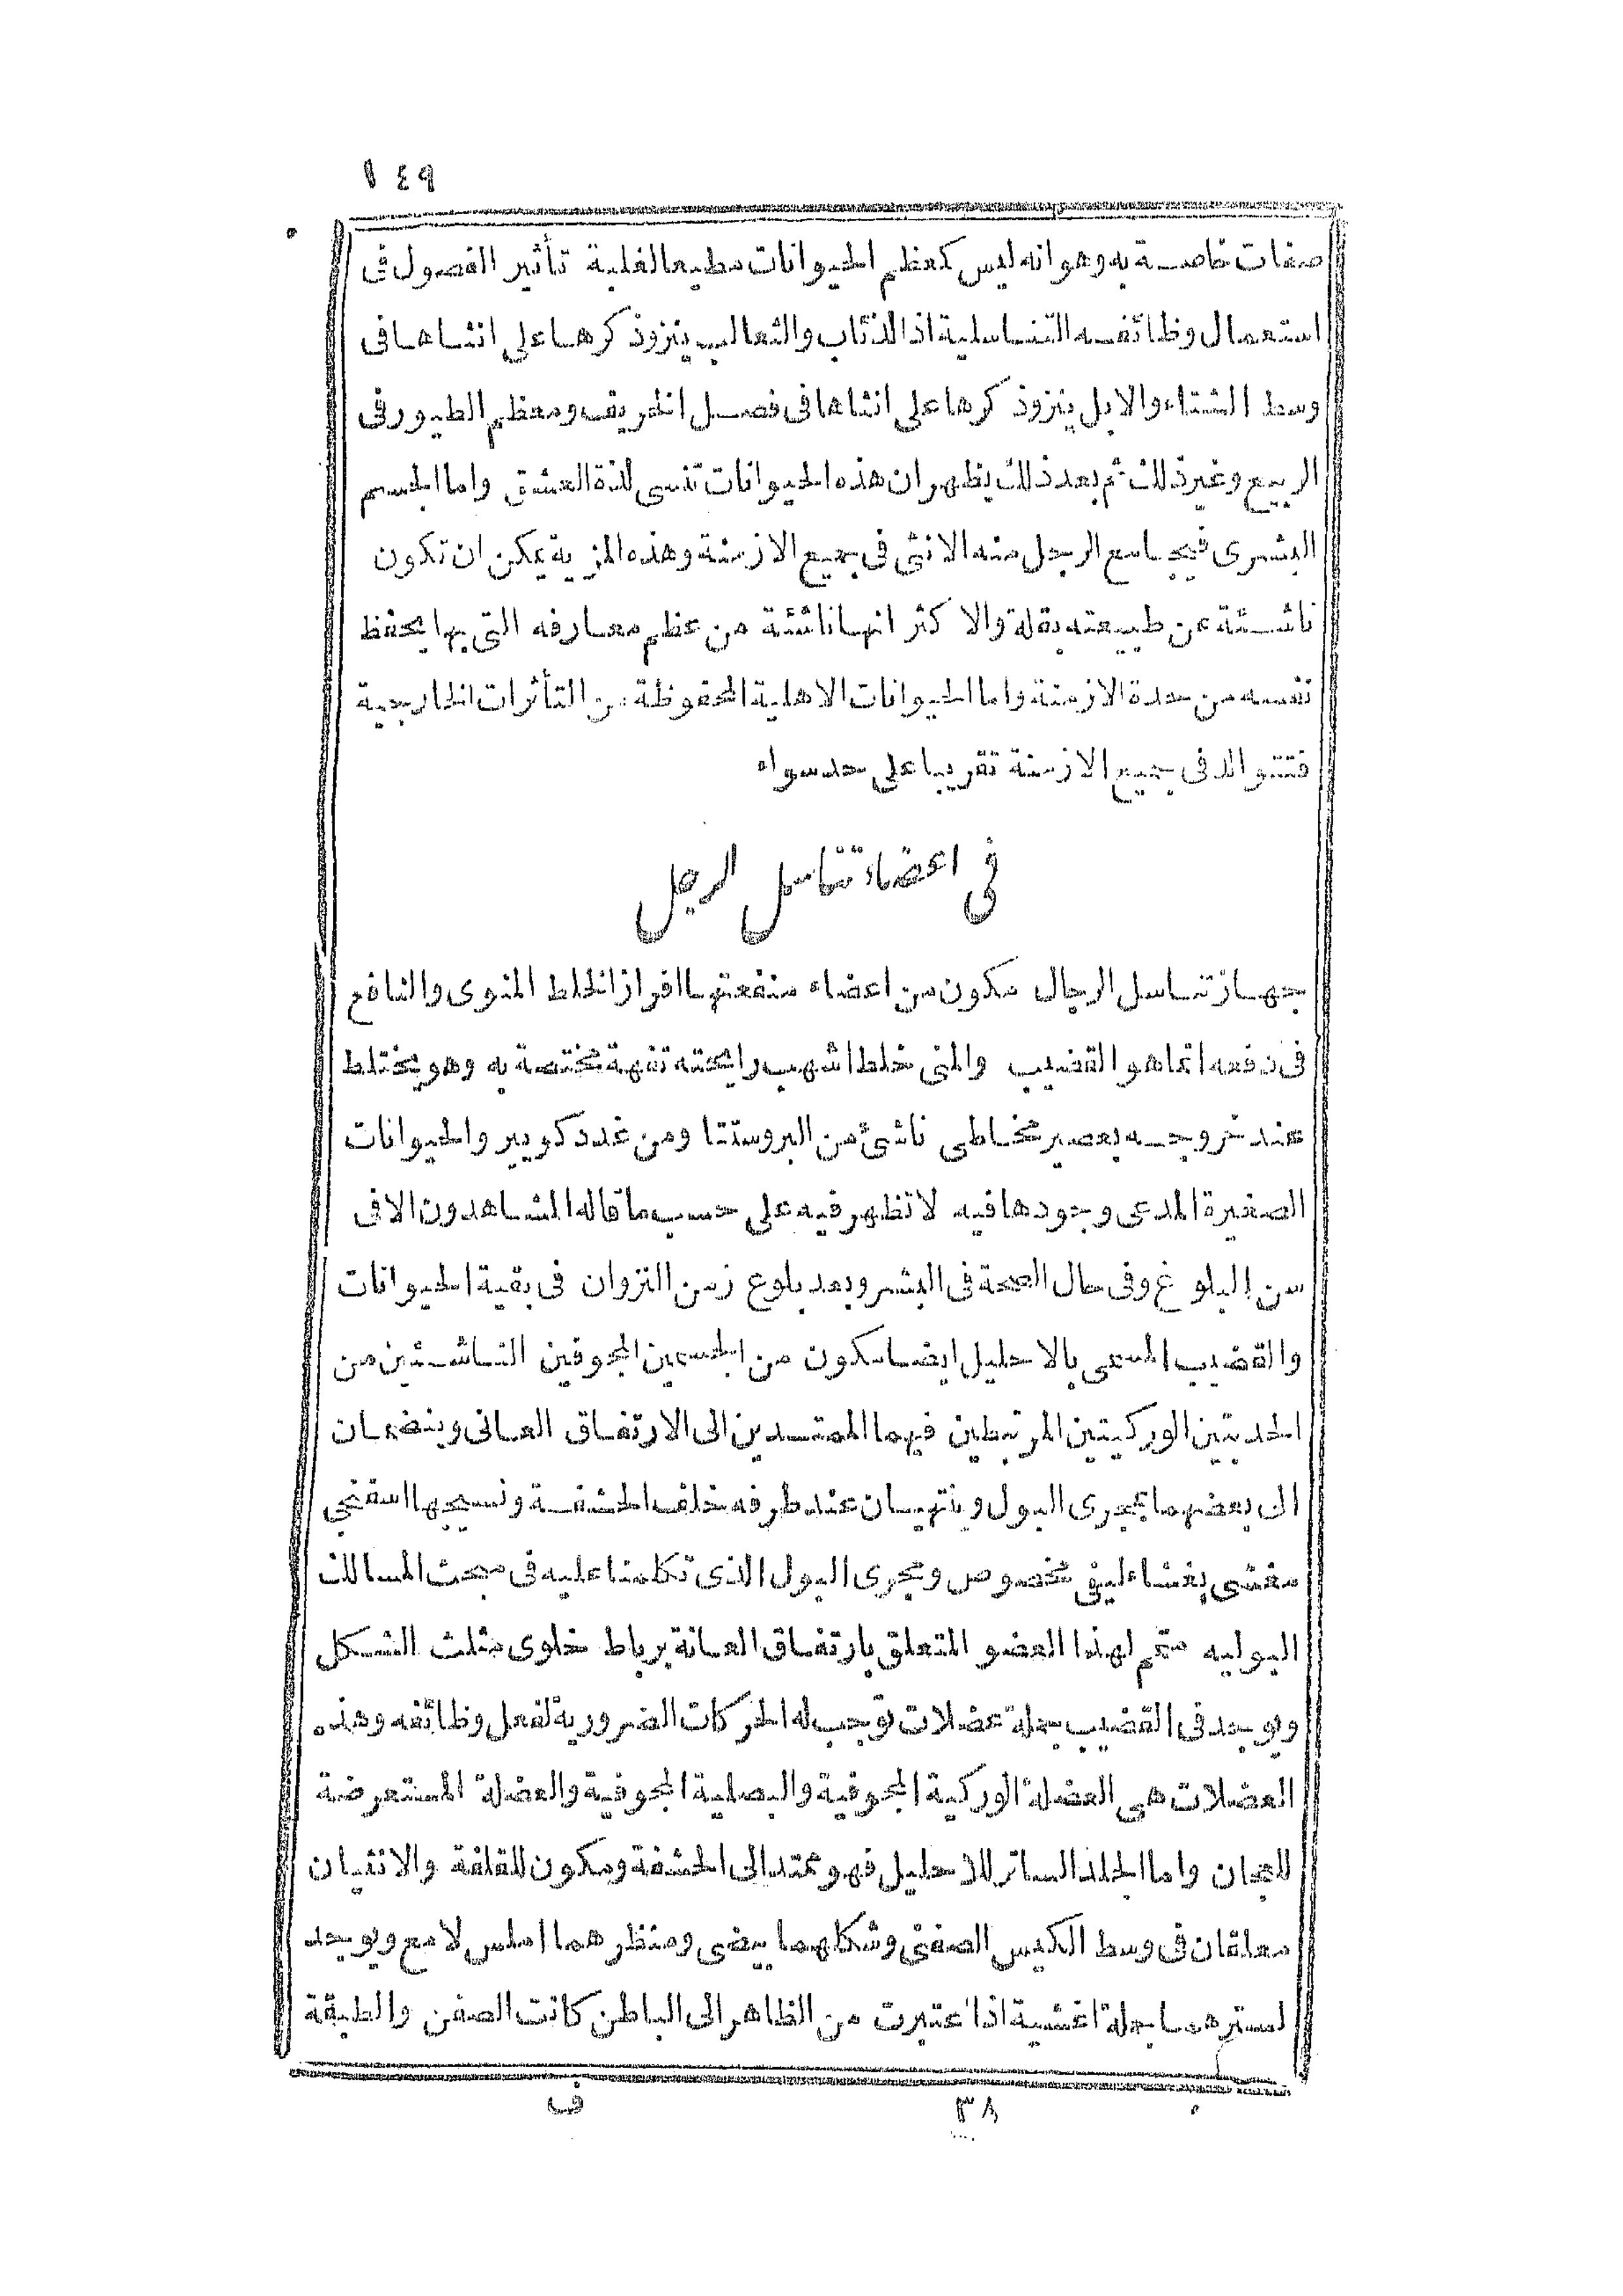 ١٤٩
صفات خاصة به وهو انه ليس كعظم الحيوانات مطيعا لغلبة تأثير الفصول فى
استعمال وظائفه التناسلية اذ الذئاب والثعالب ينزو ذكرها على انثاها فى
وسط الشتاء والابل ينزو ذكرها على انثاها فى فصل الخريف ومعظم الطيور فى
الربيع وغير ذلك ثم بعد ذلك يظهر ان هذه الحيوانات تنسى لذة العشق واما الجسم
البشرى فيجامع الرجل منه الانثى فى جميع الازمنة وهذه المزية يمكن ان تكون
ناشئة عن طبيعته بقلة والاكثر انها ناشئة من عظم معارفه التى بها يحفظ
نفسه من حدة الازمنة واما الحيوانات الاهلية المحفوظة من التأثرات الخارجية
فتتوالد فى جميع الازمنة تقريبا على حد سواء
فى اعضاء تناسل الرجل
جهاز تناسل الرجال مكون من اعضاء منفعتها افراز الخلط المنوى والنافع
فى دفعه انما هو القضيب والمنى خلط اشهب رايحته تفهة مختصة به وهو يختلط
عند خروجه بعصير مخاطى ناشئ من البروستتا ومن غدد كوبير والحيوانات
الصغيرة المدعى وجودها فيه لا تظهر فيه على حسب ما قاله المشاهدون الا فى
سن البلوغ وفى حال الصحة فى البشر وبعد بلوغ زمن النزوان فى بقية الحيوانات
والقضيب المسمى بالاحليل ايضا مكون من الجسمين المجوفين الناشئين من
الحدبتين الوركيتين المرتبطين فيهما الممتدين الى الارتفاق العانى وينضمان
الى بعضهما بمجرى البول وينتهيان عند طرفه خلف الحشفة ونسيجها اسفنجى
مغشى بغشاء ليفى مخصوص ومجرى البول الذى تكلمنا عليه فى مبحث المسالك
البوليه متمم لهذا العضو المتعلق بارتفاق العانة برباط خلوى مثلث الشكل
ويوجد فى القضيب جملة عضلات توجب له الحركات الضرورية لفعل وظائفه وهذه
العضلات هى العضلة الوركية المجوفية والبصلية المجوفية والعضلة المستعرضة
للعجان واما الجلد الساتر للاحليل فهو ممتد الى الحشفة ومكون للقلفة والانثيان
معلقان فى وسط الكيس الصفنى وشكلهما بيضى ومنظرهما املس لامع ويوجد
لسترهما جملة اغشية اذا اعتبرت من الظاهر الى الباطن كانت الصفن والطبقة
٣٨ ف